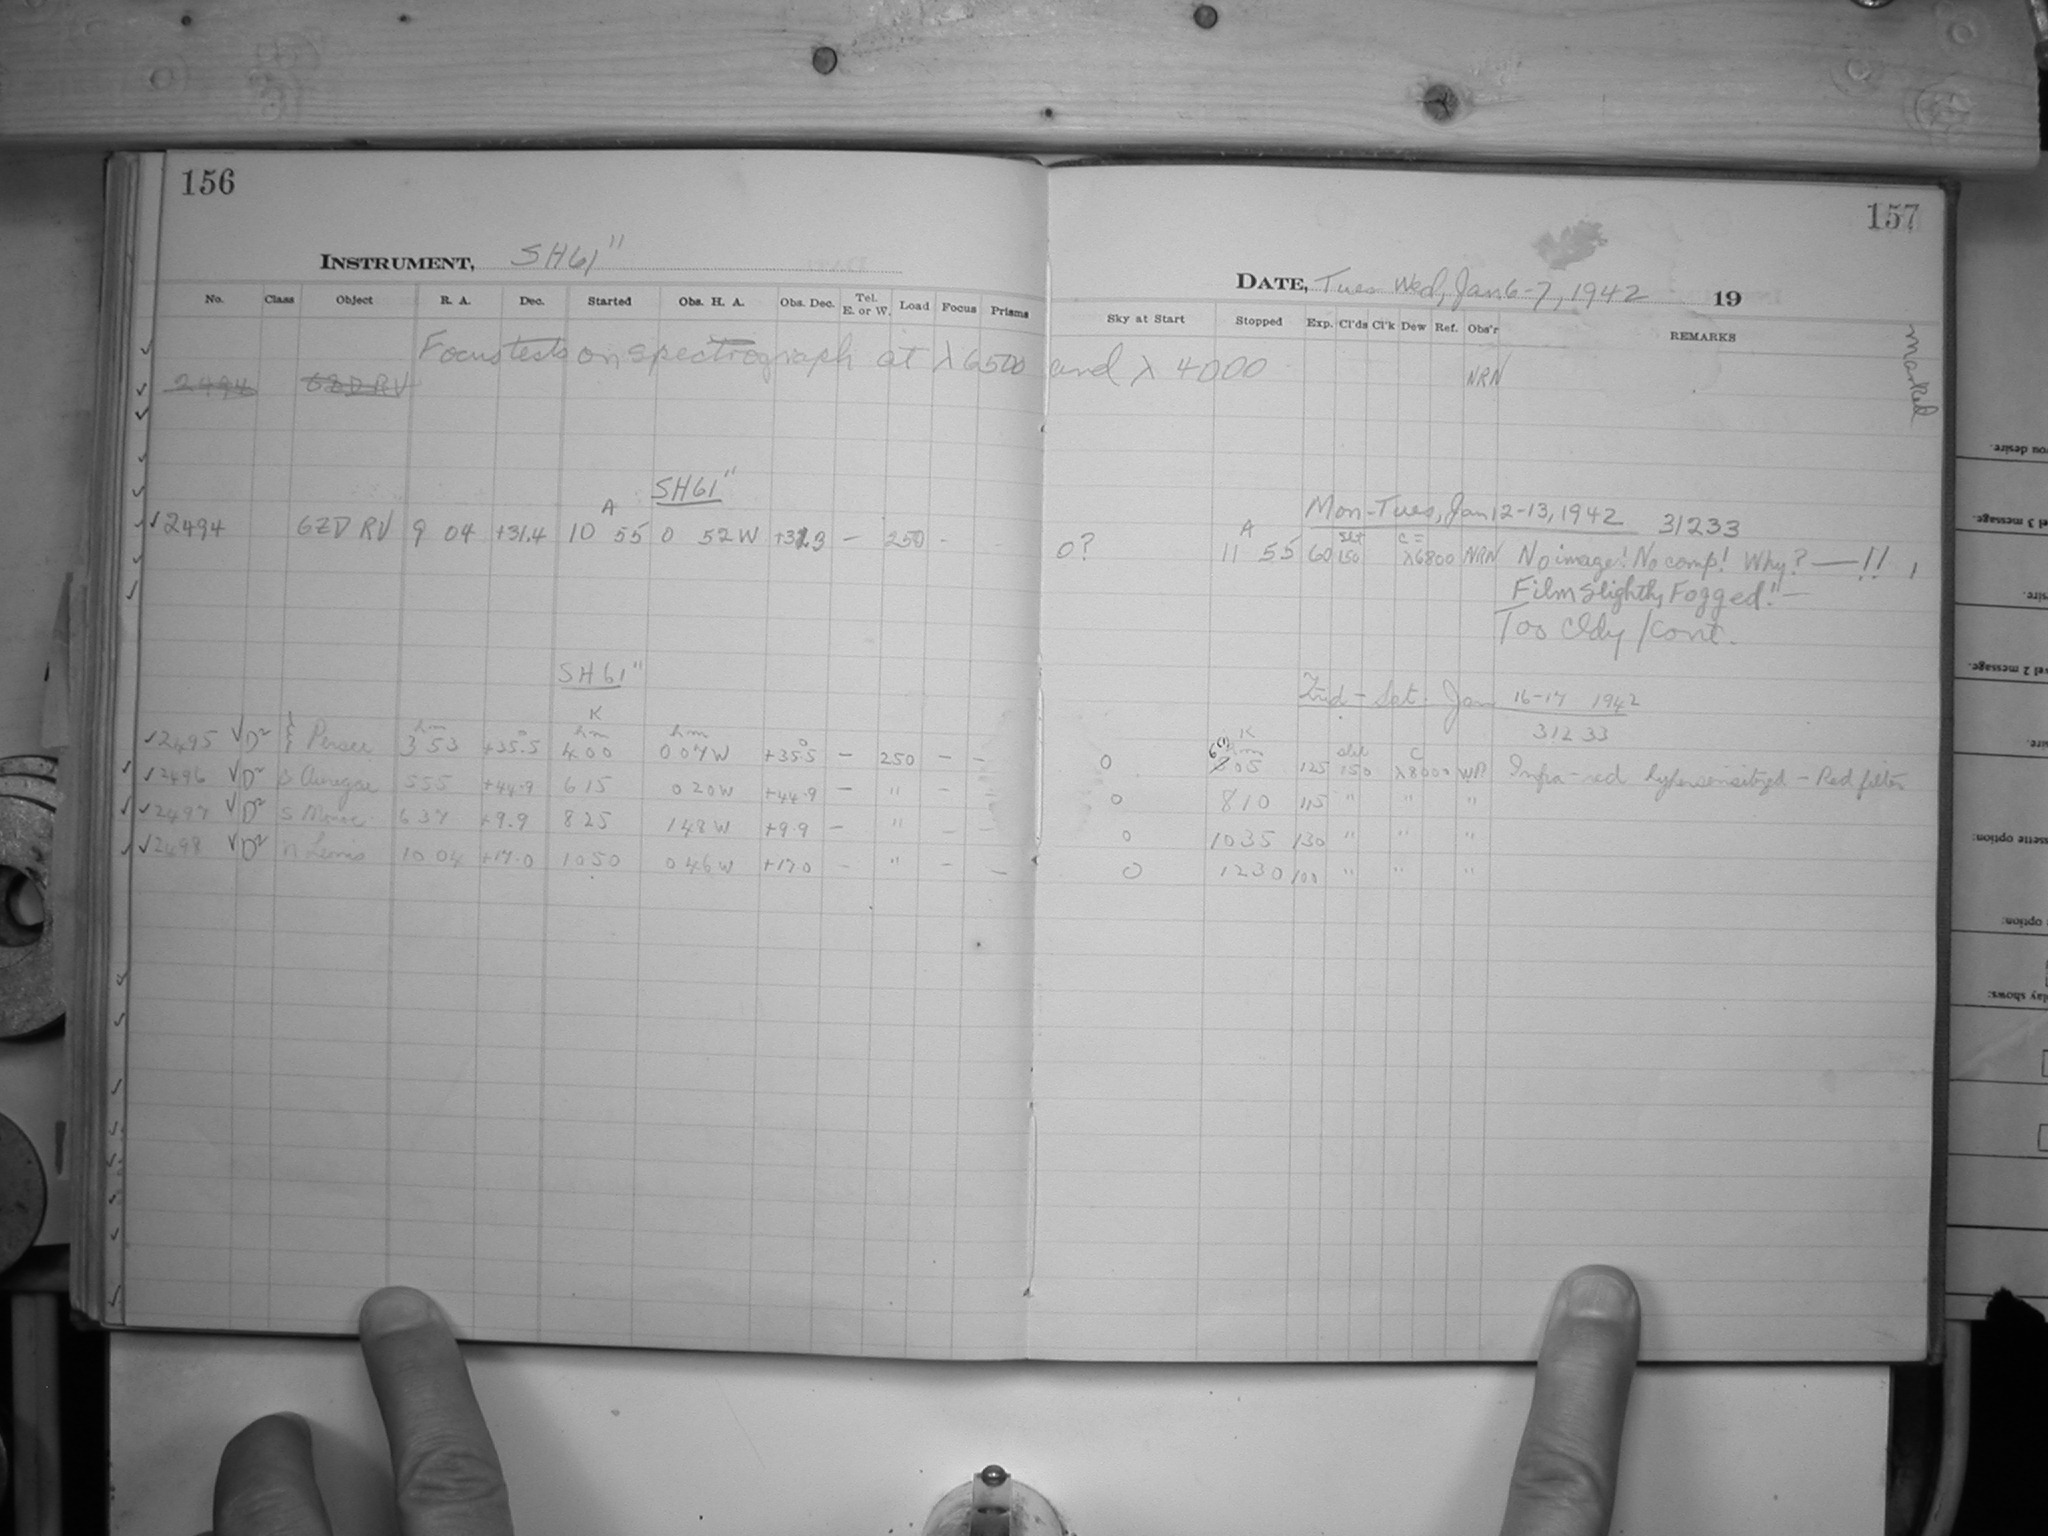 156
INSTRUMENT, SH61"
No. Class Object R. A. Dec. Started Obs. H. A. Obs. Dec. Tel. E. or W. Load Focus Prisms
Focus tests on spectrograph at λ6500 and λ 4000
2494 GZD RV
SH61"
A
✓2494 GZD RV 9 04 +31.4 10 55 0 52 W – 250 -
SH61"
K
hm hm hm
✓2495 √D² ξ Persei 3 53 +35.5 4 00 0 07 W +35.5 – 250 – –
✓2496 √D² Aurigae 5 55 +44.9 6 15 0 20 W +44.9 – " –
✓2497 √D² S Monoc. 6 37 +9.9 8 25 1 48 W +9.9 – " – –
✓2498 √D² η Leonis 10 04 +17.0 10 50 0 46 W +17.0 – " – –
157
DATE, Tues Wed, Jan 6-7, 1942 19
Sky at Start Stopped Exp. Cl'ds Cl'k Dew Ref. Obs'r REMARKS
NRN
marked
Mon-Tues, Jan 12-13, 1942 31233
A slit C =
0? 11 55 60 150 λ6800 NRN No image! No comp! Why? — !!
Film slightly Fogged!! —
Too Cldy / cont.
Frid - Sat. Jan 16-17 1942
31233
K slit C
hm
0 6 05 125 150 λ8000 WP Infra-red hypersensitized - Red filter
0 8 10 115 " " "
0 10 35 130 " " "
0 12 30 100 " " "
you desire.
el 3 message.
sire.
vel 2 message.
sire.
sette option:
option:
lay shows: